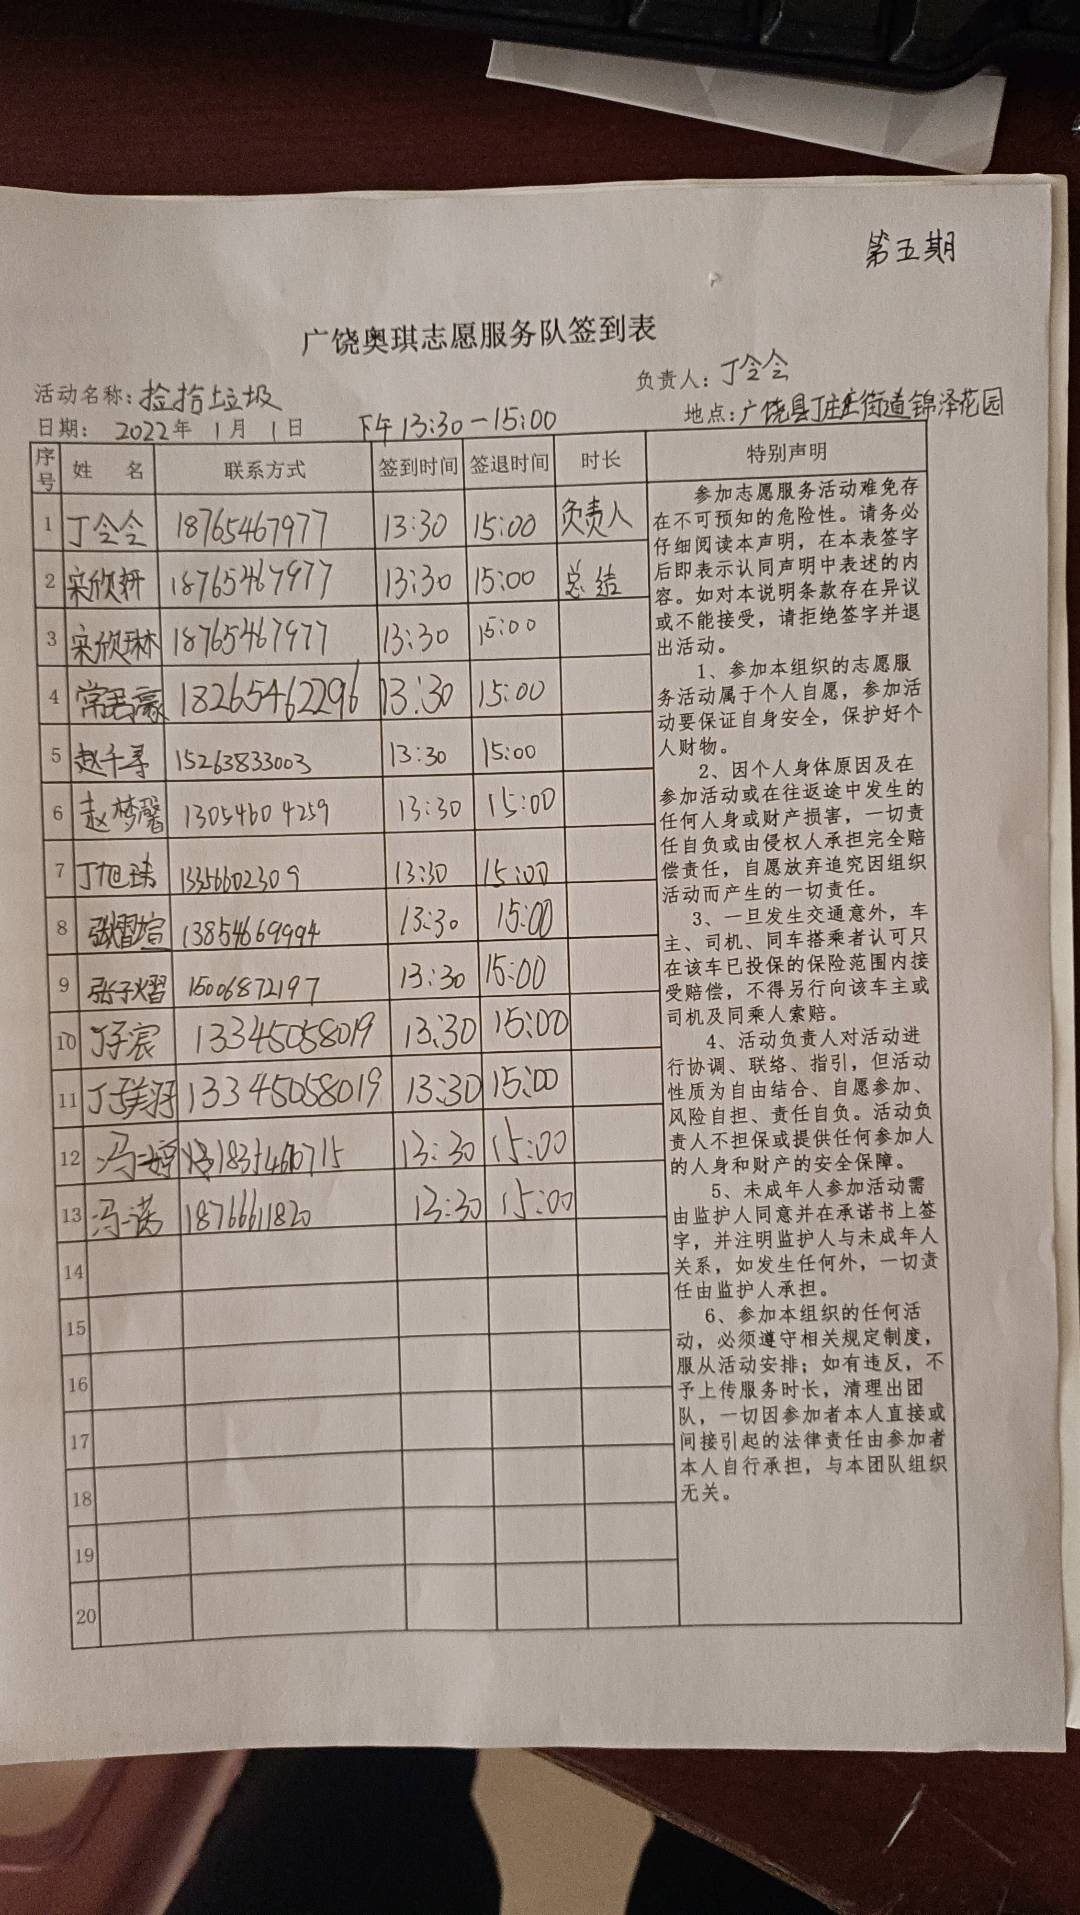 第五期
广饶奥琪志愿服务队签到表
活动名称：捡拾垃圾 负责人：丁令令
日期： 2022年 1月 1日 下午13:30-15:00 地点：广饶县丁庄街道锦泽花园
序号 姓 名 联系方式 签到时间 签退时间 时长 特别声明
1 丁令令 18765467977 13:30 15:00 负责人
2 宋欣妍 18765467977 13:30 15:00 总结
3 宋欣琳 18765467977 13:30 15:00
4 常君豪 18265462296 13:30 15:00
5 赵千寻 15263833003 13:30 15:00
6 赵梦馨 13054604259 13:30 15:00
7 丁旭 13356602309 13:30 15:00
8 张熠萱 13854669994 13:30 15:00
9 张子熠 15006872197 13:30 15:00
10 丁子宸 13345058019 13:30 15:00
11 丁 13345058019 13:30 15:00
12 冯 13:30 15:00
13 冯一诺 18766611820 13:30 15:00
14
15
16
17
18
19
20
参加志愿服务活动难免存
在不可预知的危险性。请务必
仔细阅读本声明，在本表签字
后即表示认同声明中表述的内
容。如对本说明条款存在异议
或不能接受，请拒绝签字并退
出活动。
1、参加本组织的志愿服
务活动属于个人自愿，参加活
动要保证自身安全，保护好个
人财物。
2、因个人身体原因及在
参加活动或在往返途中发生的
任何人身或财产损害，一切责
任自负或由侵权人承担完全赔
偿责任，自愿放弃追究因组织
活动而产生的一切责任。
3、一旦发生交通意外，车
主、司机、同车搭乘者认可只
在该车已投保的保险范围内接
受赔偿，不得另行向该车主或
司机及同乘人索赔。
4、活动负责人对活动进
行协调、联络、指引，但活动
性质为自由结合、自愿参加、
风险自担、责任自负。活动负
责人不担保或提供任何参加人
的人身和财产的安全保障。
5、未成年人参加活动需
由监护人同意并在承诺书上签
字，并注明监护人与未成年人
关系，如发生任何外，一切责
任由监护人承担。
6、参加本组织的任何活
动，必须遵守相关规定制度，
服从活动安排；如有违反，不
予上传服务时长，清理出团
队，一切因参加者本人直接或
间接引起的法律责任由参加者
本人自行承担，与本团队组织
无关。